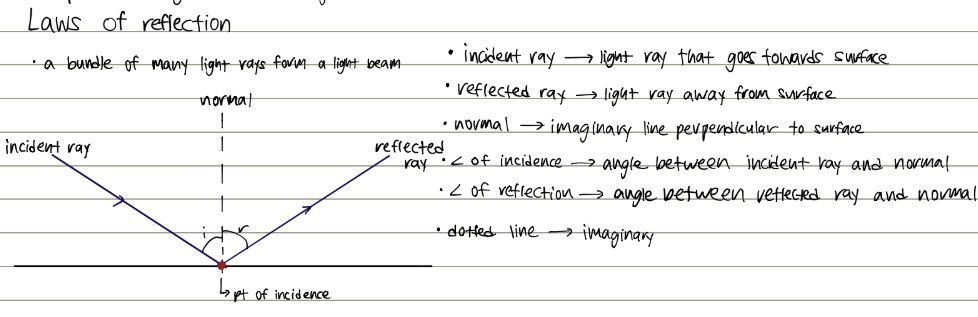 Laws of reflection
· a bundle of many light rays form a light beam
normal
incident ray
reflected
ray
i
r
↳ pt of incidence
• incident ray → light ray that goes towards surface
• reflected ray → light ray away from surface
• normal → imaginary line perpendicular to surface
• ∠ of incidence → angle between incident ray and normal
• ∠ of reflection → angle between reflected ray and normal
• dotted line → imaginary